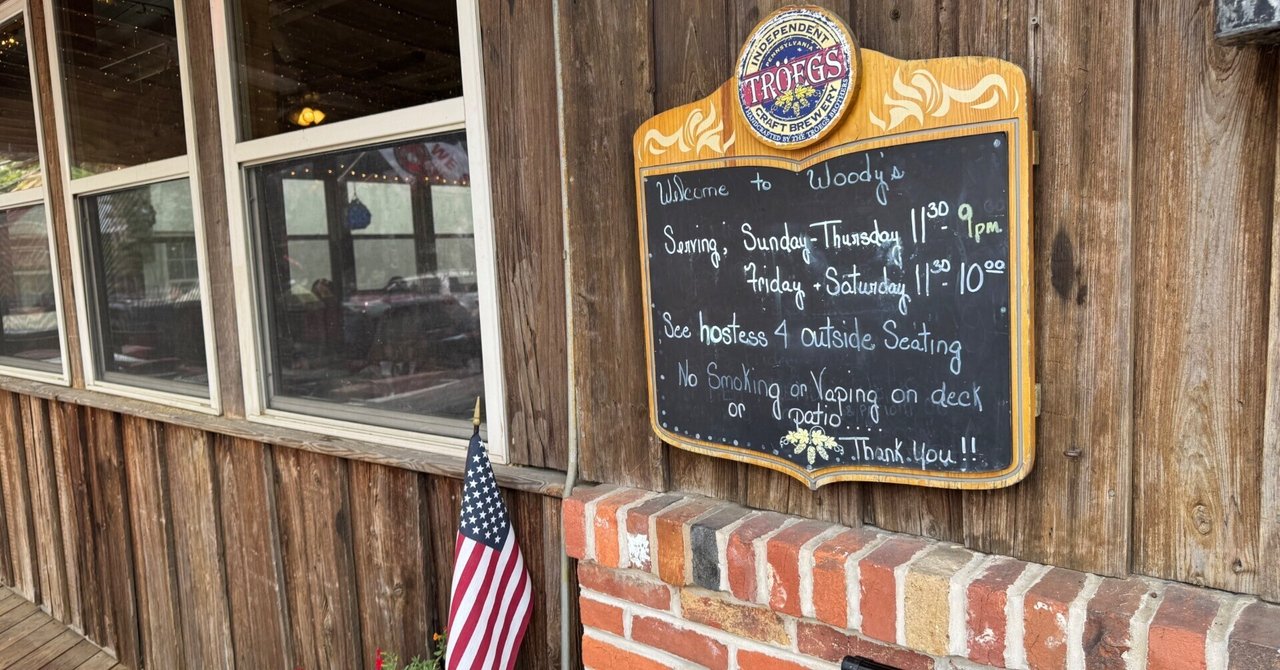 INDEPENDENT
PENNSYLVANIA
TROEGS
CRAFT BREWERY
HANDCRAFTED BY THE TROEGS BROTHERS
Welcome to Woody's
Serving, Sunday-Thursday 11³⁰-9pm
Friday + Saturday 11³⁰-10⁰⁰
See hostess 4 outside Seating
No Smoking or Vaping on deck
or patio....
Thank You!!